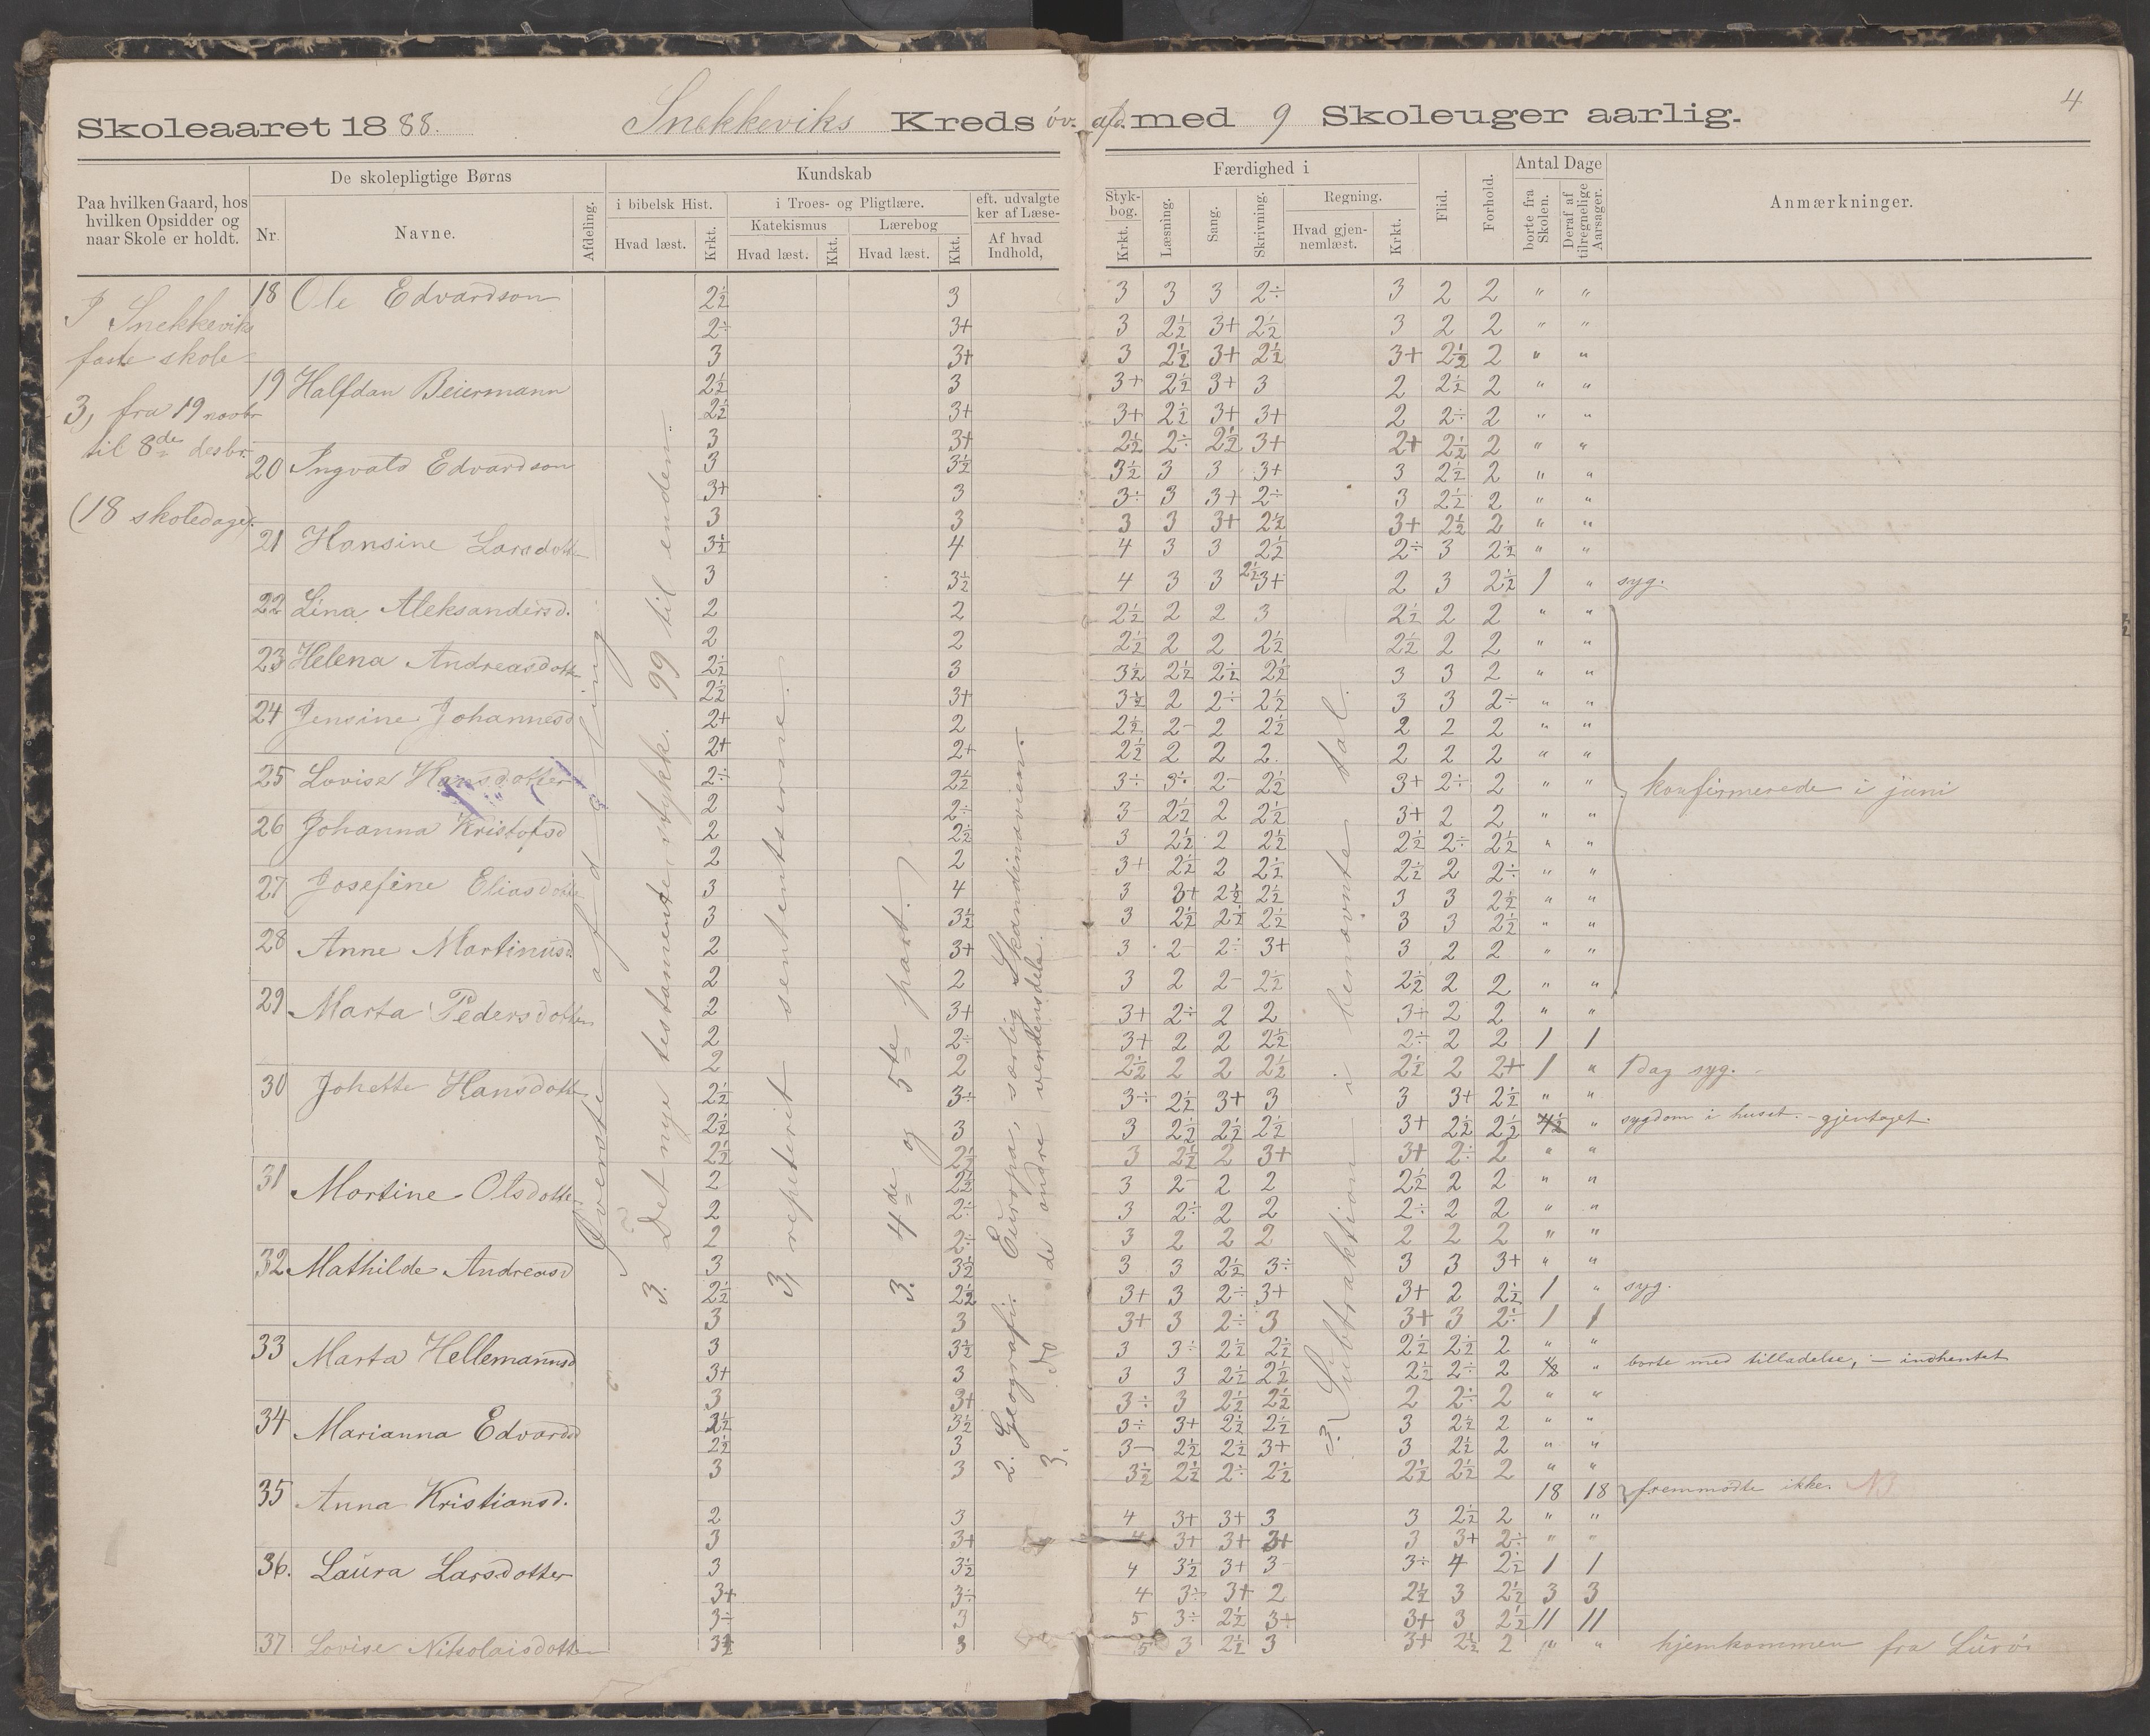 4
Skoleaaret 1888. Snekkeviks Kreds øv. afd. med 9 Skoleuger aarlig.
Paa hvilken Gaard, hos hvilken Opsidder og naar Skole er holdt.
De skolepligtige Børns
Nr. Navne. Afdeling.
Kundskab
i bibelsk Hist. i Troes- og Pligtlære. eft. udvalgte
ker af Læse-
Katekismus Lærebog
Hvad læst. Krkt. Hvad læst. Kkt. Hvad læst. Kkt. Af hvad Indhold,
Færdighed i
Styk-bog. Krkt. Læsning. Sang. Skrivning. Regning. Hvad gjen-nemlæst. Krkt.
Flid. Forhold.
Antal Dage
borte fra Skolen. Deraf af tilregnelige Aarsager.
Anmærkninger.
I Snekkeviks
faste skole
3, fra 19 novbr
til 8de desbr.
(18 skoledage).
18 Ole Edvardson 2½ 3 3 3 3 2÷ 3 2 2 " "
2÷ 3+ 3 2½ 3+ 2½ 3 2 2 " "
3 3+ 3 2½ 3+ 2½ 3+ 2½ 2 " "
19 Halfdan Beiermann 2½ 3 3+ 2½ 3+ 3 2 2½ 2 " "
2½ 3+ 3+ 2½ 3+ 3+ 2 2÷ 2 " "
3 3+ 2½ 2÷ 2½ 3+ 2+ 2½ 2 " "
20 Ingvald Edvardson 3 3½ 3½ 3 3 3+ 3 2½ 2 " "
3+ 3 3÷ 3 3+ 2÷ 3 2½ 2 " "
3 3 3 3 3+ 2½ 3+ 2½ 2 " "
21 Hansine Larsdotter 3½ 4 4 3 3 2½ 2÷ 3 2½ " "
3 3½ 4 3 3 3+ 2 3 2½ 1 " syg.
22 Lina Aleksandersd. 2 2 2½ 2 2 3 2½ 2 2 " "
2 2 2½ 2 2 2½ 2½ 2 2 " "
23 Helena Andreasdott. 2½ 3 3½ 2½ 2½ 2½ 3 3 2 " "
2½ 3+ 3½ 2 2÷ 2½ 3 3 2÷ " "
24 Jensine Johannesd 2+ 2 2½ 2- 2 2½ 2 2 2 " "
2+ 2+ 2½ 2 2 2. 2 2 2 " "
25 Lovise Hansdotter 2÷ 2½ 3÷ 3÷ 2- 2½ 3+ 2÷ 2 " "
konfirmerede i juni
2 2÷ 3 2½ 2 2½ 3+ 2 2 " "
26 Johanna Kristofsd 2 2½ 3 2½ 2 2½ 2½ 2÷ 2½ " "
2 2 3+ 2½ 2 2½ 2½ 2 2÷ " "
27 Josefine Eliasdotter 3 4 3 3+ 2½ 2½ 3 3 2½ " "
3 3½ 3 2½ 2½ 2½ 3 3 2½ " "
28 Anne Martinusd. 2 3+ 3 2 2÷ 3+ 3 2 2 " "
2 2 3 2 2- 2½ 2½ 2 2 " "
29 Marta Pedersdotter 2 3+ 3+ 2÷ 2 2 3÷ 2 2 " "
2 2÷ 3+ 2 2 2½ 2÷ 2 2 1 1
2 2 2½ 2 2 2½ 2½ 2 2+ 1 " 1 dag syg.
30 Johette Hansdotter 2½ 3÷ 3÷ 2½ 3+ 3 3 3+ 2½ " "
2½ 3 3 2½ 2½ 2½ 3+ 2½ 2½ " sygdom i huset. - gjentaget.
2½ 2½ 3 2½ 2 3+ 3+ 2÷ 2 " "
31 Martine Olsdotter 2 2½ 3 2- 2 2 2½ 2 2 " "
2 2÷ 3 2÷ 2 2 2÷ 2 2 " "
2 2÷ 3 2 2 2 2 2 2 " "
32 Mathilde Andreasd 3 3½ 3 3 2½ 3÷ 3 3 3+ " "
2½ 2½ 3+ 3 2÷ 3+ 3+ 2 2½ 1 " syg.
3 3 3+ 3 2÷ 3 3+ 3 2÷ 1 1
33 Marta Hellemannsd 3 3½ 3 3÷ 2½ 2½ 2½ 2½ 2 " "
3+ 3 3 3 2½ 2½ 2½ 2÷ 2 " borte med tilladelse, - indhentet
3 3+ 3÷ 3 2½ 2½ 2 2÷ 2 " "
34 Marianna Edvardsd 3½ 3½ 3÷ 3+ 2½ 2½ 3 2½ 2 " "
2½ 3 3- 2½ 2½ 3+ 3 2½ 2 " "
3 3 3½ 2½ 2÷ 2½ 2½ 2½ 2 " "
35 Anna Kristiansd. 18 18 fremmødte ikke. NB
2 3 4 3+ 3+ 3 3 2½ 2 " "
3 3+ 4 3+ 3+ 3+ 3 3+ 2÷ " "
36. Laura Larsdotter 3 3½ 4 3½ 3+ 3- 3÷ 4 2½ 1 1
3+ 3÷ 4 3÷ 3+ 2 2½ 3 2½ 3 3
3÷ 3 5 3÷ 2½ 3+ 3+ 3 2½ 11 11
37 Lovise Nikolaisdotter 3½ 3 5 3 2½ 3 3+ 2½ 2 " " hjemkommen fra Lurø.
Øverste afdeling
3. Det nye testamente stykk. 99 til enden.
3, repeterit sentenserne.
3. 4de og 5te part.
2. Geografi. Europa, særlig Skandinavien.
3. do de andre verdensdele.
3. Subtraktion i benævnte tal.